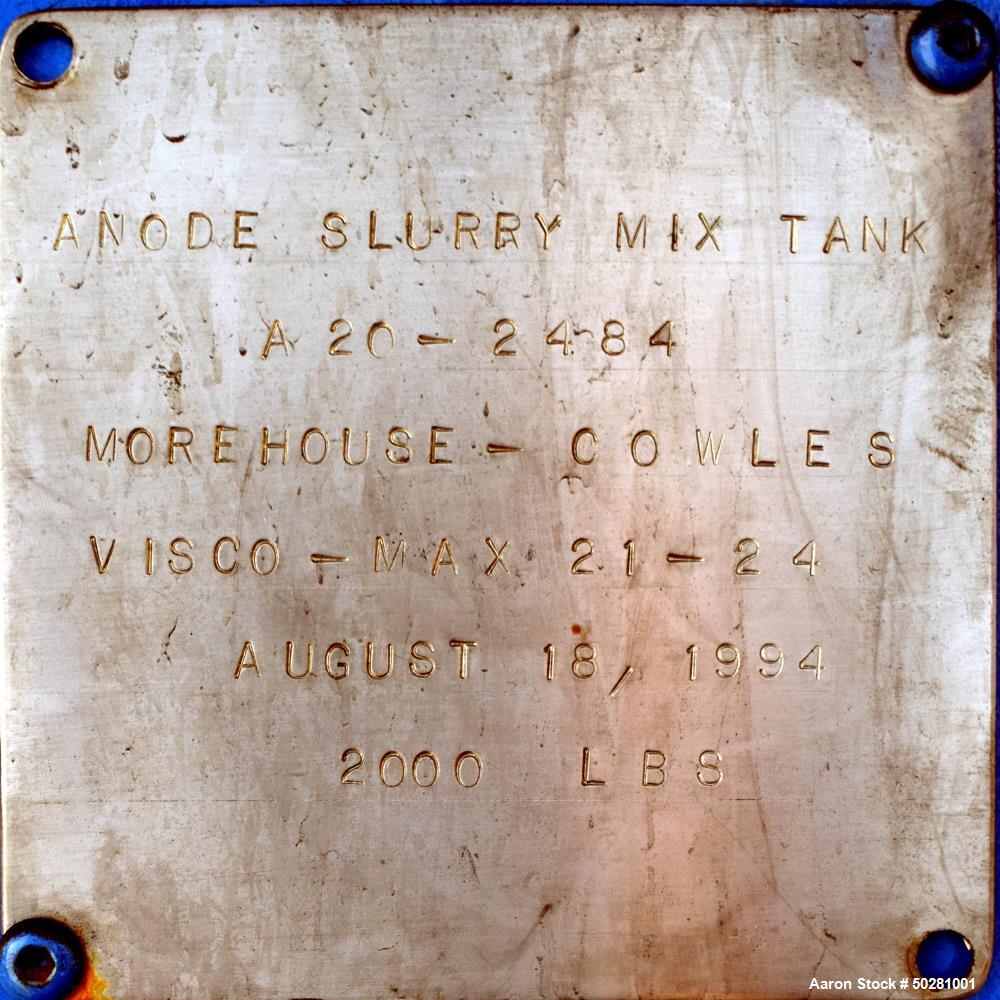 ANODE SLURRY MIX TANK
A20-2484
MOREHOUSE - COWLES
VISCO - MAX 21-24
AUGUST 18, 1994
2000 LBS
Aaron Stock # 50281001